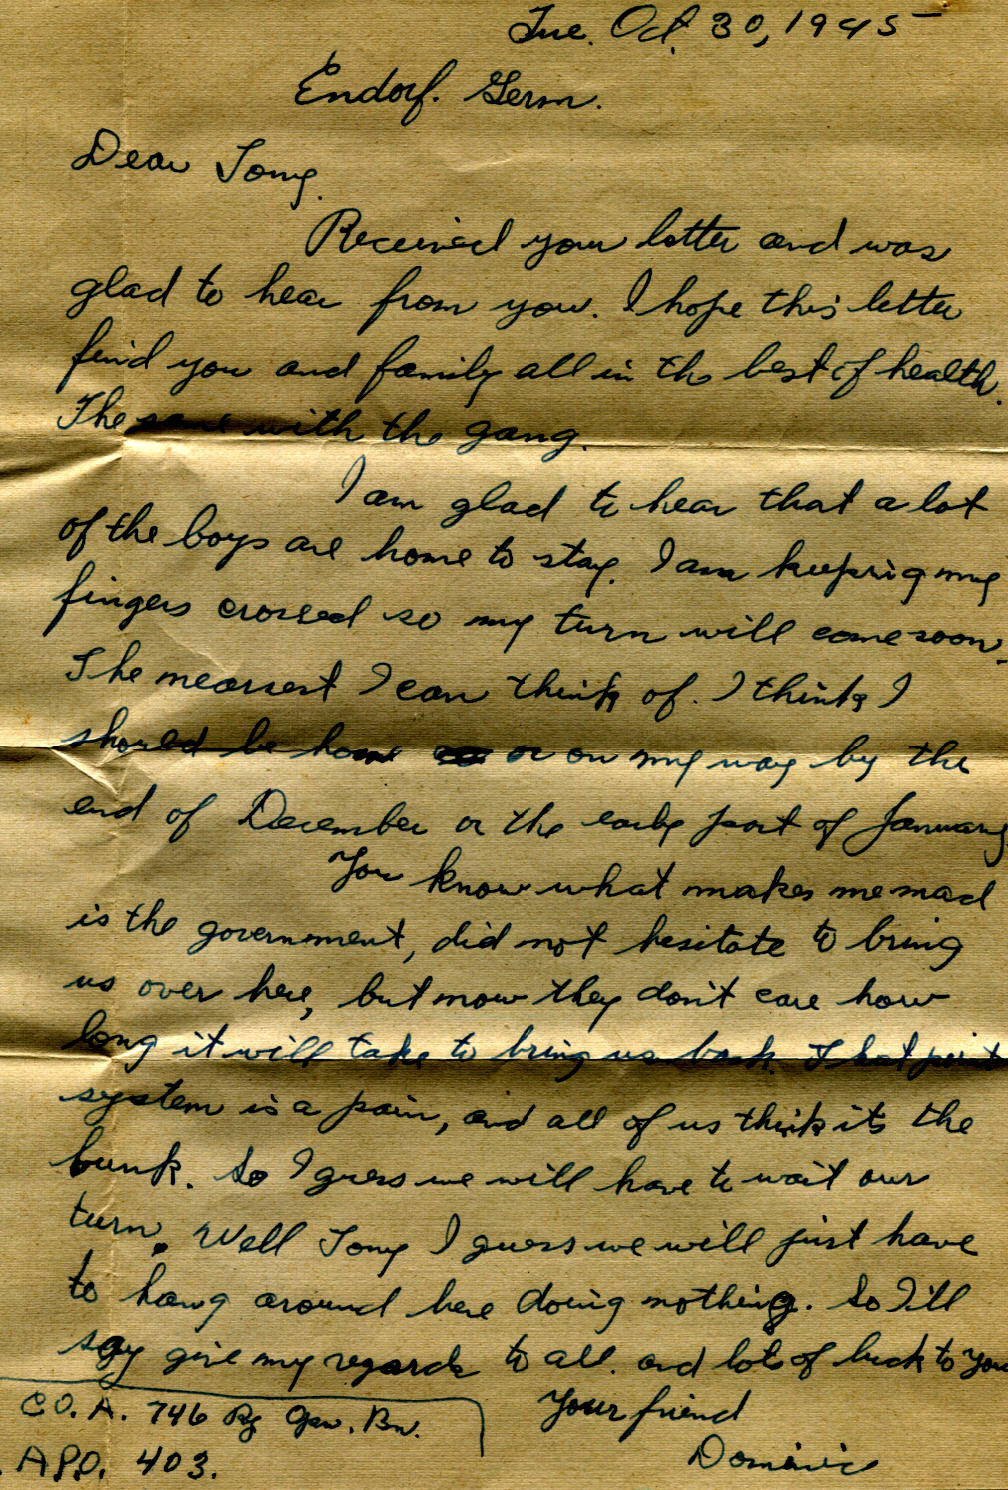 Tue. Oct. 30, 1945
Endorf. Germ.
Dear Tony.
Received your letter and was
glad to hear from you. I hope this letter
find you and family all in the best of health.
The same with the gang.
I am glad to hear that a lot
of the boys are home to stay. I am keeping my
fingers crossed so my turn will come soon.
The nearest I can think of. I think I
should be home or on my way by the
end of December or the early part of January
You know what makes me mad
is the government, did not hesitate to bring
us over here, but now they don't care how
long it will take to bring us back. That point
system is a pain, and all of us think its the
bunk. So I guess we will have to wait our
turn. Well Tony I guess we will just have
to hang around here doing nothing. So I'll
say give my regards to all. and lots of luck to you
Your friend
Dominic
CO. A. 746 Ry Opn. Bn.
A.P.O. 403.